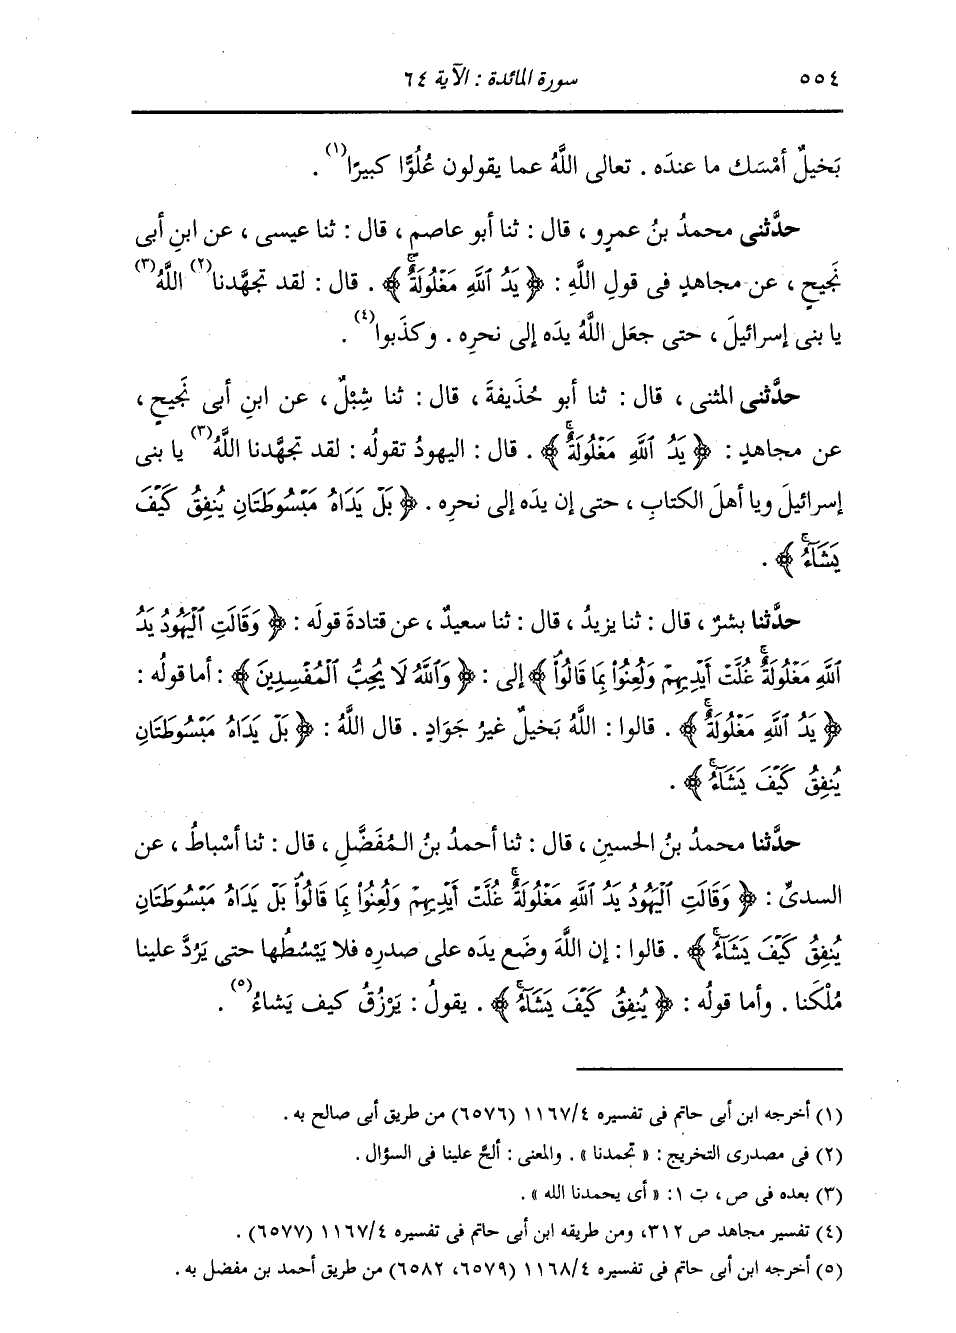 ٥٥٤ سورة المائدة : الآية ٦٤
بَخيلٌ أمْسَك ما عندَه . تعالى اللَّهُ عما يقولون عُلُوًّا كبيرًا(١) .
حدَّثنى محمدُ بنُ عمرٍو ، قال : ثنا أبو عاصمٍ ، قال : ثنا عيسى ، عن ابنِ أبى
نَجيحٍ ، عن مجاهدٍ فى قولِ اللَّهِ : ﴿ يَدُ ٱللَّهِ مَغْلُولَةٌۚ ﴾ . قال : لقد تجهَّدنا(٢) اللَّهُ(٣)
يا بنى إسرائيلَ ، حتى جعَل اللَّهُ يدَه إلى نحرِه . وكذَبوا(٤) .
حدَّثنى المثنى ، قال : ثنا أبو حُذَيفةَ ، قال : ثنا شِبْلٌ ، عن ابنِ أبى نَجيحٍ ،
عن مجاهدٍ : ﴿ يَدُ ٱللَّهِ مَغْلُولَةٌۚ ﴾ . قال : اليهودُ تقولُه : لقد تجهَّدنا اللَّهُ(٣) يا بنى
إسرائيلَ ويا أهلَ الكتابِ ، حتى إن يدَه إلى نحرِه . ﴿ بَلْ يَدَاهُ مَبْسُوطَتَانِ يُنفِقُ كَيْفَ
يَشَآءُۚ ﴾ .
حدَّثنا بشرٌ ، قال : ثنا يزيدُ ، قال : ثنا سعيدٌ ، عن قتادةَ قولَه : ﴿ وَقَالَتِ ٱلْيَهُودُ يَدُ
ٱللَّهِ مَغْلُولَةٌۚ غُلَّتْ أَيْدِيهِمْ وَلُعِنُوا۟ بِمَا قَالُوا۟ ﴾ إلى : ﴿ وَٱللَّهُ لَا يُحِبُّ ٱلْمُفْسِدِينَ ﴾ : أما قولُه :
﴿ يَدُ ٱللَّهِ مَغْلُولَةٌۚ ﴾ . قالوا : اللَّهُ بَخيلٌ غيرُ جَوَادٍ . قال اللَّهُ : ﴿ بَلْ يَدَاهُ مَبْسُوطَتَانِ
يُنفِقُ كَيْفَ يَشَآءُۚ ﴾ .
حدَّثنا محمدُ بنُ الحسينِ ، قال : ثنا أحمدُ بنُ المُفَضَّلِ ، قال : ثنا أسْباطُ ، عن
السدىِّ : ﴿ وَقَالَتِ ٱلْيَهُودُ يَدُ ٱللَّهِ مَغْلُولَةٌۚ غُلَّتْ أَيْدِيهِمْ وَلُعِنُوا۟ بِمَا قَالُوا۟ بَلْ يَدَاهُ مَبْسُوطَتَانِ
يُنفِقُ كَيْفَ يَشَآءُۚ ﴾ . قالوا : إن اللَّهَ وضَع يدَه على صدرِه فلا يَبْسُطُها حتى يَرُدَّ علينا
مُلْكَنا . وأما قولُه : ﴿ يُنفِقُ كَيْفَ يَشَآءُۚ ﴾ . يقولُ : يَرْزُقُ كيف يَشاءُ(٥) .
(١) أخرجه ابن أبى حاتم فى تفسيره ١١٦٧/٤ (٦٥٧٦) من طريق أبى صالح به .
(٢) فى مصدرى التخريج : « تحمدنا » . والمعنى : ألحَّ علينا فى السؤال .
(٣) بعده فى ص ، ت ١: « أى يحمدنا الله » .
(٤) تفسير مجاهد ص ٣١٢، ومن طريقه ابن أبى حاتم فى تفسيره ١١٦٧/٤ (٦٥٧٧) .
(٥) أخرجه ابن أبى حاتم فى تفسيره ١١٦٨/٤ (٦٥٧٩، ٦٥٨٢) من طريق أحمد بن مفضل به .